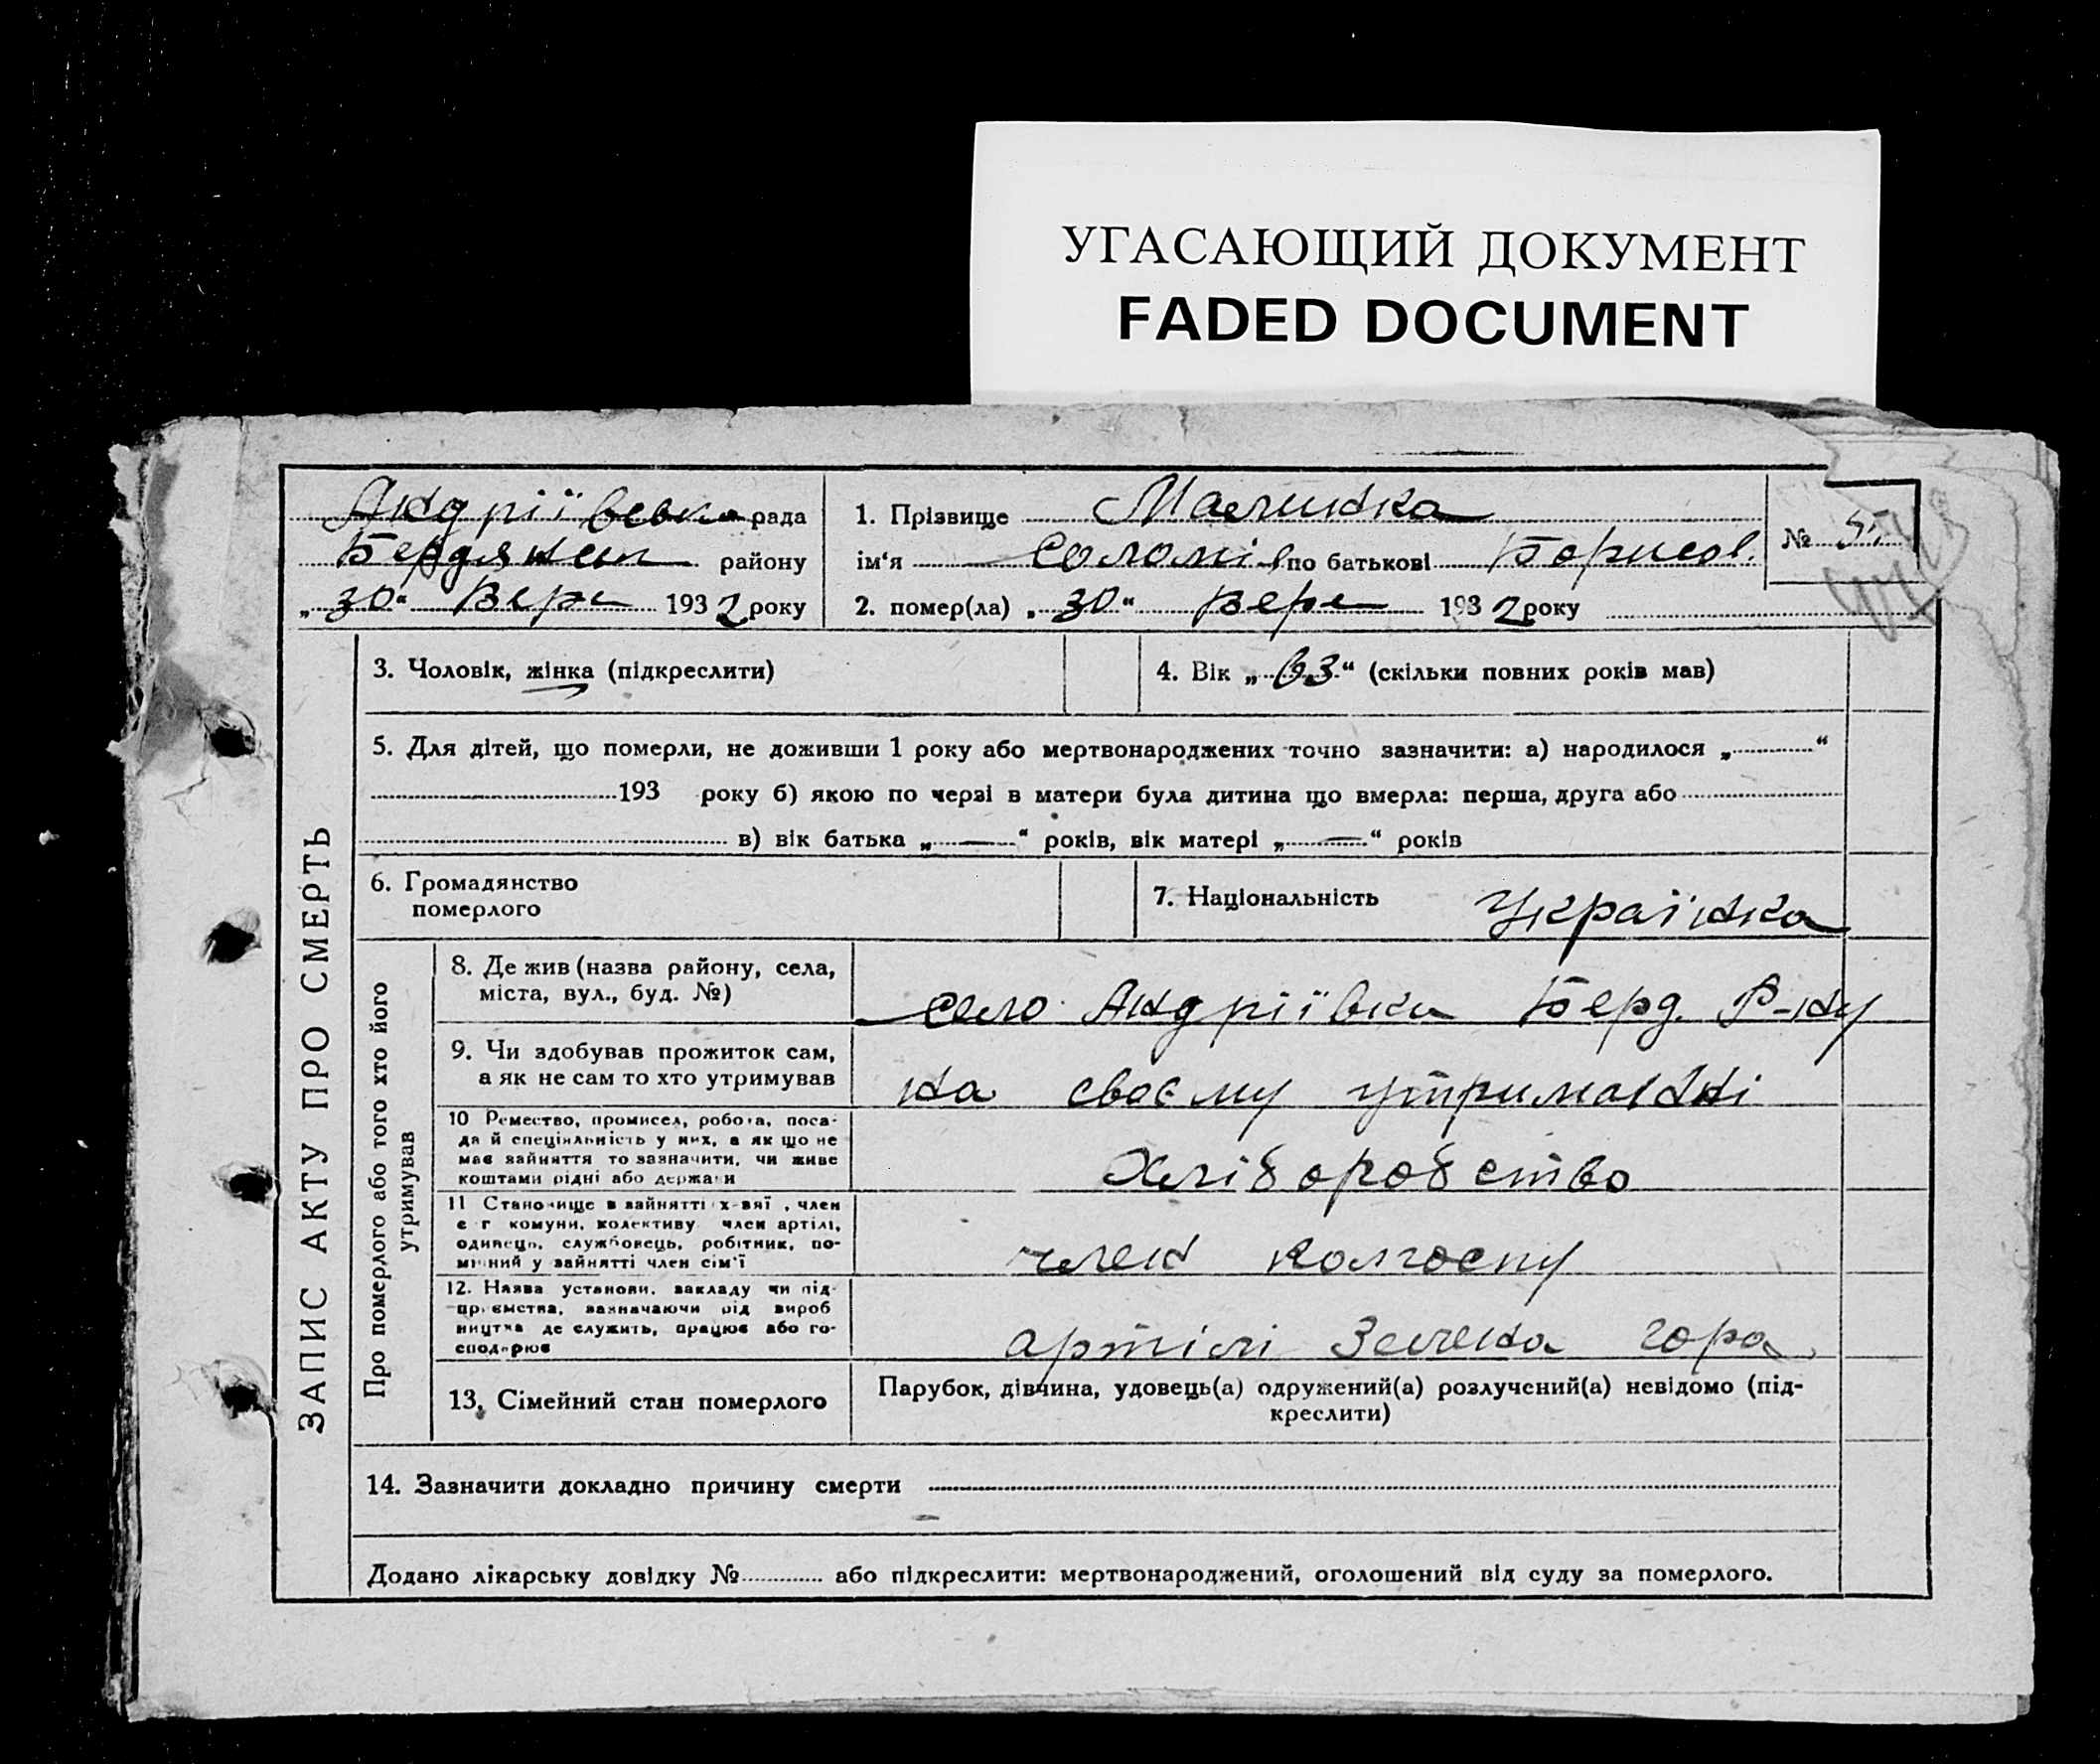 УГАСАЮЩИЙ ДОКУМЕНТ
FADED DOCUMENT
Андріївська рада
Бердянськ району
„30“ Вере 1932 року
1. Прізвище Малишка
ім‘я Соломія по батькові Борисов.
№
2. помер(ла) „30“ Вере 1932 року
ЗАПИС АКТУ ПРО СМЕРТЬ
3. Чоловік, жінка (підкреслити)
4. Вік „63“ (скільки повних років мав)
5. Для дітей, що померли, не доживши 1 року або мертвонароджених точно зазначити: а) народилося „ “
193 року б) якою по черзі в матери була дитина що вмерла: перша, друга або
в) вік батька „—“ років, вік матері „—“ років
6. Громадянство
померлого
7. Національність Українка
Про померлого або того хто його
утримував
8. Де жив (назва району, села,
міста, вул., буд. №)
село Андріївка Берд. Р-ну
9. Чи здобував прожиток сам,
а як не сам то хто утримував
на своєму утриманні
10 Ремество, промисел, робота, поса-
да й спеціяльність у них, а як що не
має зайняття то зазначити, чи живе
коштами рідні або держави
Хліборобство
11 Становище в зайнятті х-вяї, член
с г комуни, колективу член артілі,
одинець, службовець, робітник, по-
мічний у зайнятті член сім‘ї
член колгоспу
12. Назва установи, закладу чи під-
приємства, зазначаючи рід вироб
ництва де служить, працює або го-
сподарює
артілі Зелена гора
13. Сімейний стан померлого
Парубок, дівчина, удовець(а) одружений(а) розлучений(а) невідомо (під-
креслити)
14. Зазначити докладно причину смерти
Додано лікарську довідку № або підкреслити: мертвонароджений, оголошений від суду за померлого.